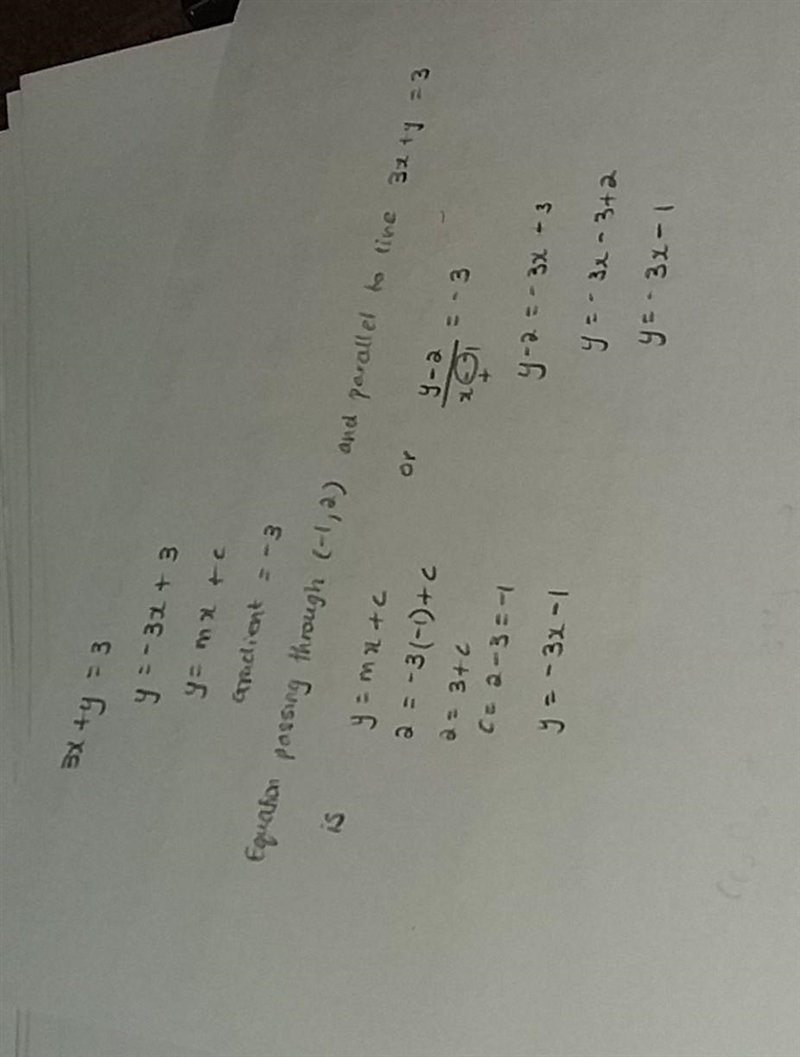 3x + y = 3
y = -3x + 3
y = mx + c
Gradient = -3
Equation passing through (-1, 2) and parallel to line 3x + y = 3
is
y = mx + c
2 = -3(-1) + c
2 = 3 + c
c = 2 - 3 = -1
y = -3x - 1
or
y - 2 / x - -1 = -3
+
y - 2 = -3x - 3
y = -3x - 3 + 2
y = -3x - 1